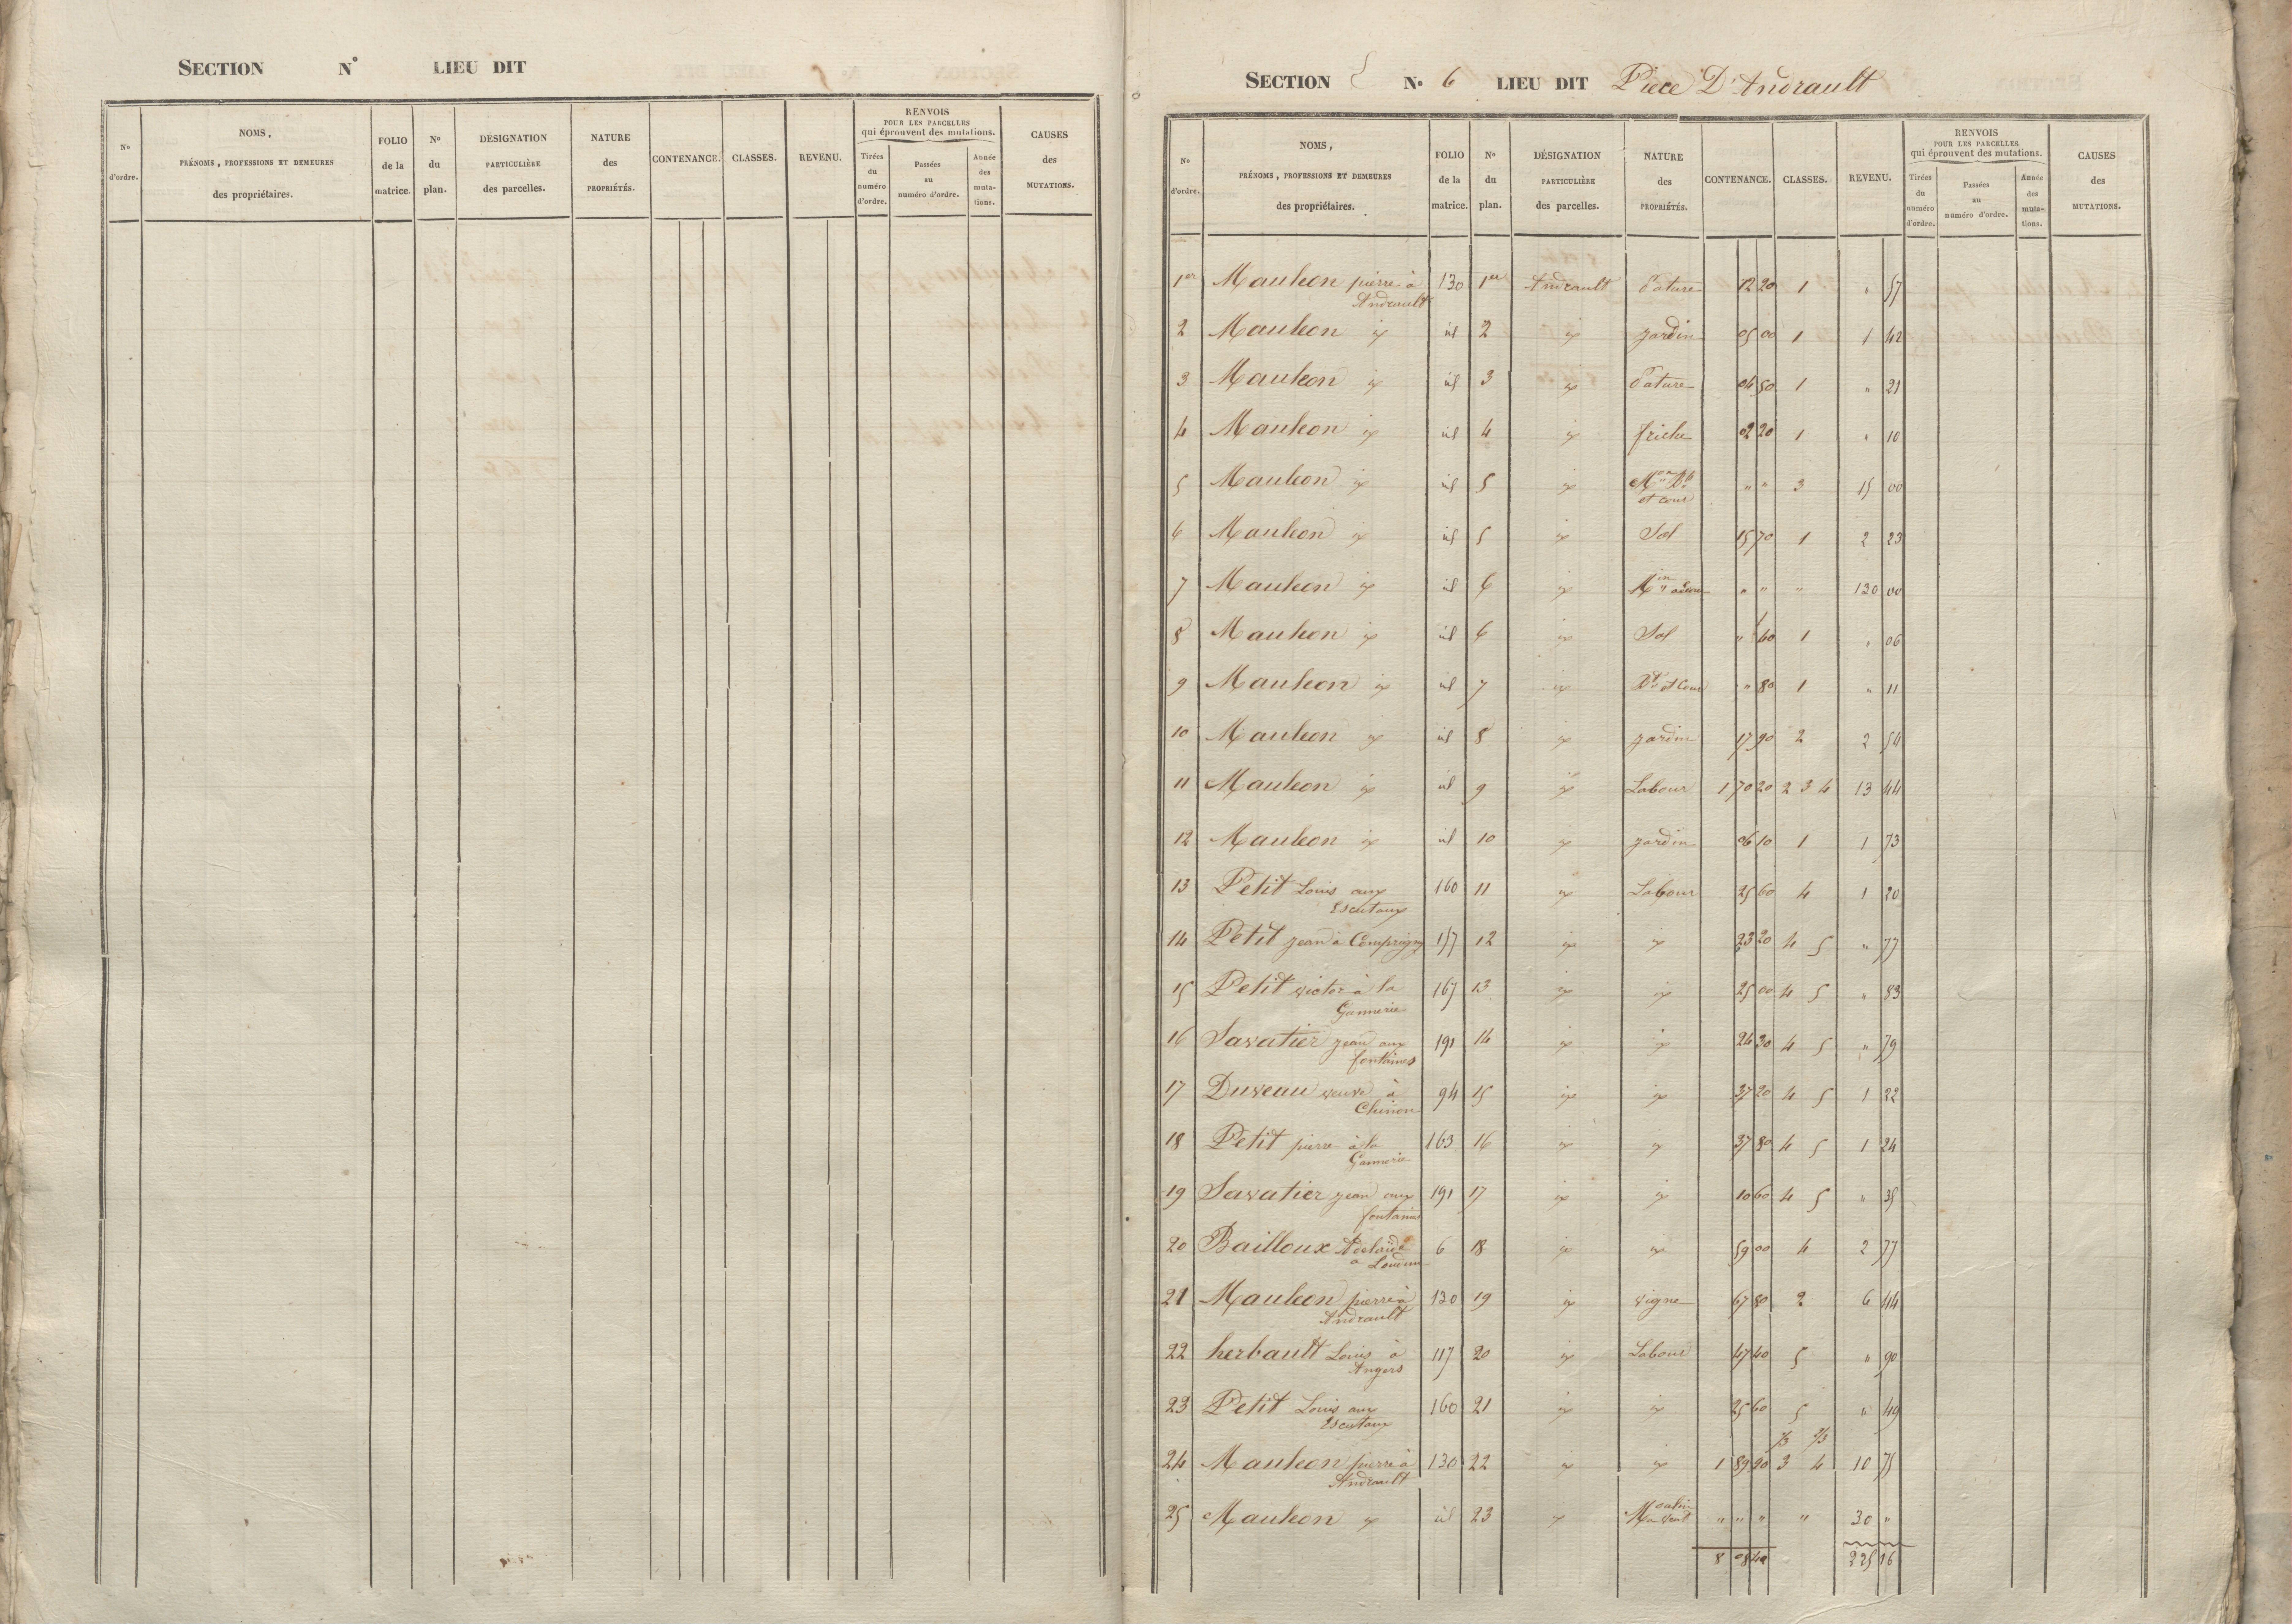 SECTION N° LIEU DIT
N° d'ordre.
NOMS, PRÉNOMS, PROFESSIONS ET DEMEURES des propriétaires.
FOLIO de la matrice.
N° du plan.
DÉSIGNATION PARTICULIÈRE des parcelles.
NATURE des PROPRIÉTÉS.
CONTENANCE.
CLASSES.
REVENU.
RENVOIS POUR LES PARCELLES qui éprouvent des mutations.
Tirées du numéro d'ordre.
Passées au numéro d'ordre.
Année des muta-tions.
CAUSES des MUTATIONS.
SECTION N° 6 LIEU DIT Pièce D'Andrault
N° d'ordre.
NOMS, PRÉNOMS, PROFESSIONS ET DEMEURES des propriétaires.
FOLIO de la matrice.
N° du plan.
DÉSIGNATION PARTICULIÈRE des parcelles.
NATURE des PROPRIÉTÉS.
CONTENANCE.
CLASSES.
REVENU.
RENVOIS POUR LES PARCELLES qui éprouvent des mutations.
Tirées du numéro d'ordre.
Passées au numéro d'ordre.
Année des muta-tions.
CAUSES des MUTATIONS.
1er Mauleon pierre à Andrault 130 1er Andrault Pature 12 20 1 " 57
2 Mauleon id 2 jardin 05 00 1 1 42
3 Mauleon id 3 Pature 04 50 1 " 21
4 Mauleon id 4 friche 02 20 1 " 10
5 Mauleon id 5 Mon Bt et cour " " 3 15 00
6 Mauleon id 5 Sol 15 70 1 2 23
7 Mauleon id 6 Min à eau " " " 130 00
8 Mauleon id 6 Sol " 60 1 " 06
9 Mauleon id 7 Bt et Cour " 80 1 " 11
10 Mauleon id 8 jardin 17 90 2 2 54
11 Mauleon id 9 Labour 1 70 20 2 3 4 13 44
12 Mauleon id 10 jardin 06 10 1 1 73
13 Petit Louis aux Escutaux 160 11 Labour 25 60 4 1 20
14 Petit jean à Comprigny 157 12 23 20 4 5 " 77
15 Petit victor à la Gannerie 167 13 25 00 4 5 " 83
16 Savatier jean aux fontaines 191 14 24 20 4 5 " 79
17 Duveau veuve à Chinon 94 15 37 20 4 5 1 22
18 Petit pierre à la Gannerie 163 16 37 80 4 5 1 24
19 Savatier jean aux fontaines 191 17 10 60 4 5 " 35
20 Bailloux Adelaïde à Loudun 6 18 59 00 4 2 77
21 Mauleon pierre à Andrault 130 19 vigne 67 80 2 6 44
22 herbault Louis à Angers 117 20 Labour 47 40 5 " 90
23 Petit Louis aux Escutaux 160 21 25 60 5 " 49
24 Mauleon pierre à Andrault 130 22 1 89 90 1/3 2/3 3 4 10 75
25 Mauleon id 23 Moulin à vent " " " " 30 "
8 08 40 225 16